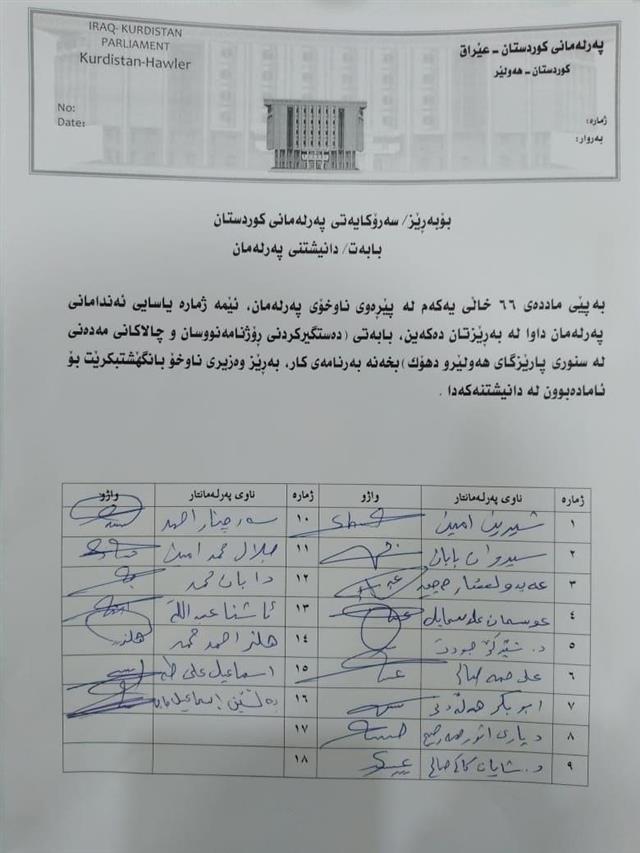 IRAQ- KURDISTAN
PARLIAMENT
Kurdistan-Hawler
No:
Date:
پەرلەمانی کوردستان - عێراق
کوردستان - هەولێر
ژمارە:
بەروار:
بۆبەڕێز/ سەرۆکایەتی پەرلەمانی کوردستان
بابەت/ دانیشتنی پەرلەمان
بەپێی ماددەی ٦٦ خاڵی یەکەم لە پێڕەوی ناوخۆی پەرلەمان، ئێمە ژمارە یاسایی ئەندامانی
پەرلەمان داوا لە بەڕێزتان دەکەین، بابەتی (دەستگیرکردنی ڕۆژنامەنووسان و چالاکانی مەدەنی
لە سنوری پارێزگای هەولێرو دهۆک) بخەنە بەرنامەی کار، بەڕێز وەزیری ناوخۆ بانگهێشتبکرێت بۆ
ئامادەبوون لە دانیشتنەکەدا .
ژمارە ناوی پەرلەمانتار واژو ژمارە ناوی پەرلەمانتار واژو
١ شیرین امین ١٠ سەرچنار احمد
٢ سیروان بابان ١١ جلال محمد امین
٣ ١٢ دابان محمد
٤ عوسمان ١٣ ئاشنا عبدالله
٥ د. شێرکۆ جودت ١٤ هلز احمد حمد
٦ علی حمە صالح ١٥ اسماعیل علی طه
٧ ابوبکر هەڵەدنی ١٦ بەڵێن إسماعیل
٨ دیاری انور حمە رحیم ١٧
٩ د. شایان کاکە صالح ١٨